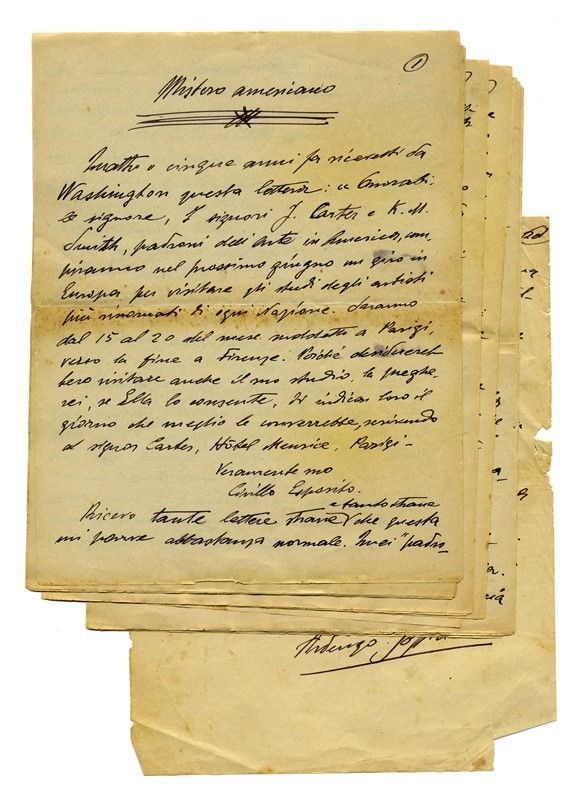 1
Mistero americano
Quattro o cinque anni fa ricevetti da
Washington questa lettera: « Onorabi-
le signore, I signori J. Carter e K. M.
Smith, padroni dell'arte in America, com-
piranno nel prossimo giugno un giro in
Europa per visitare gli studi degli artisti
più rinomati di ogni Nazione. Saranno
dal 15 al 20 del mese suddetto a Parigi,
verso la fine a Firenze. Poiché desidereret-
bero visitare anche il suo studio, la preghe-
rei, se Ella lo consente, di indicar loro il
giorno che meglio le converrebbe, scrivendo
al signor Carter, Hôtel Meurice, Parigi -
Veramente suo
Cirillo Esposito.
e tanto strane
Ricevo tante lettere strane che questa
mi parve abbastanza normale. Quei "padro-
Ardengo Soffici